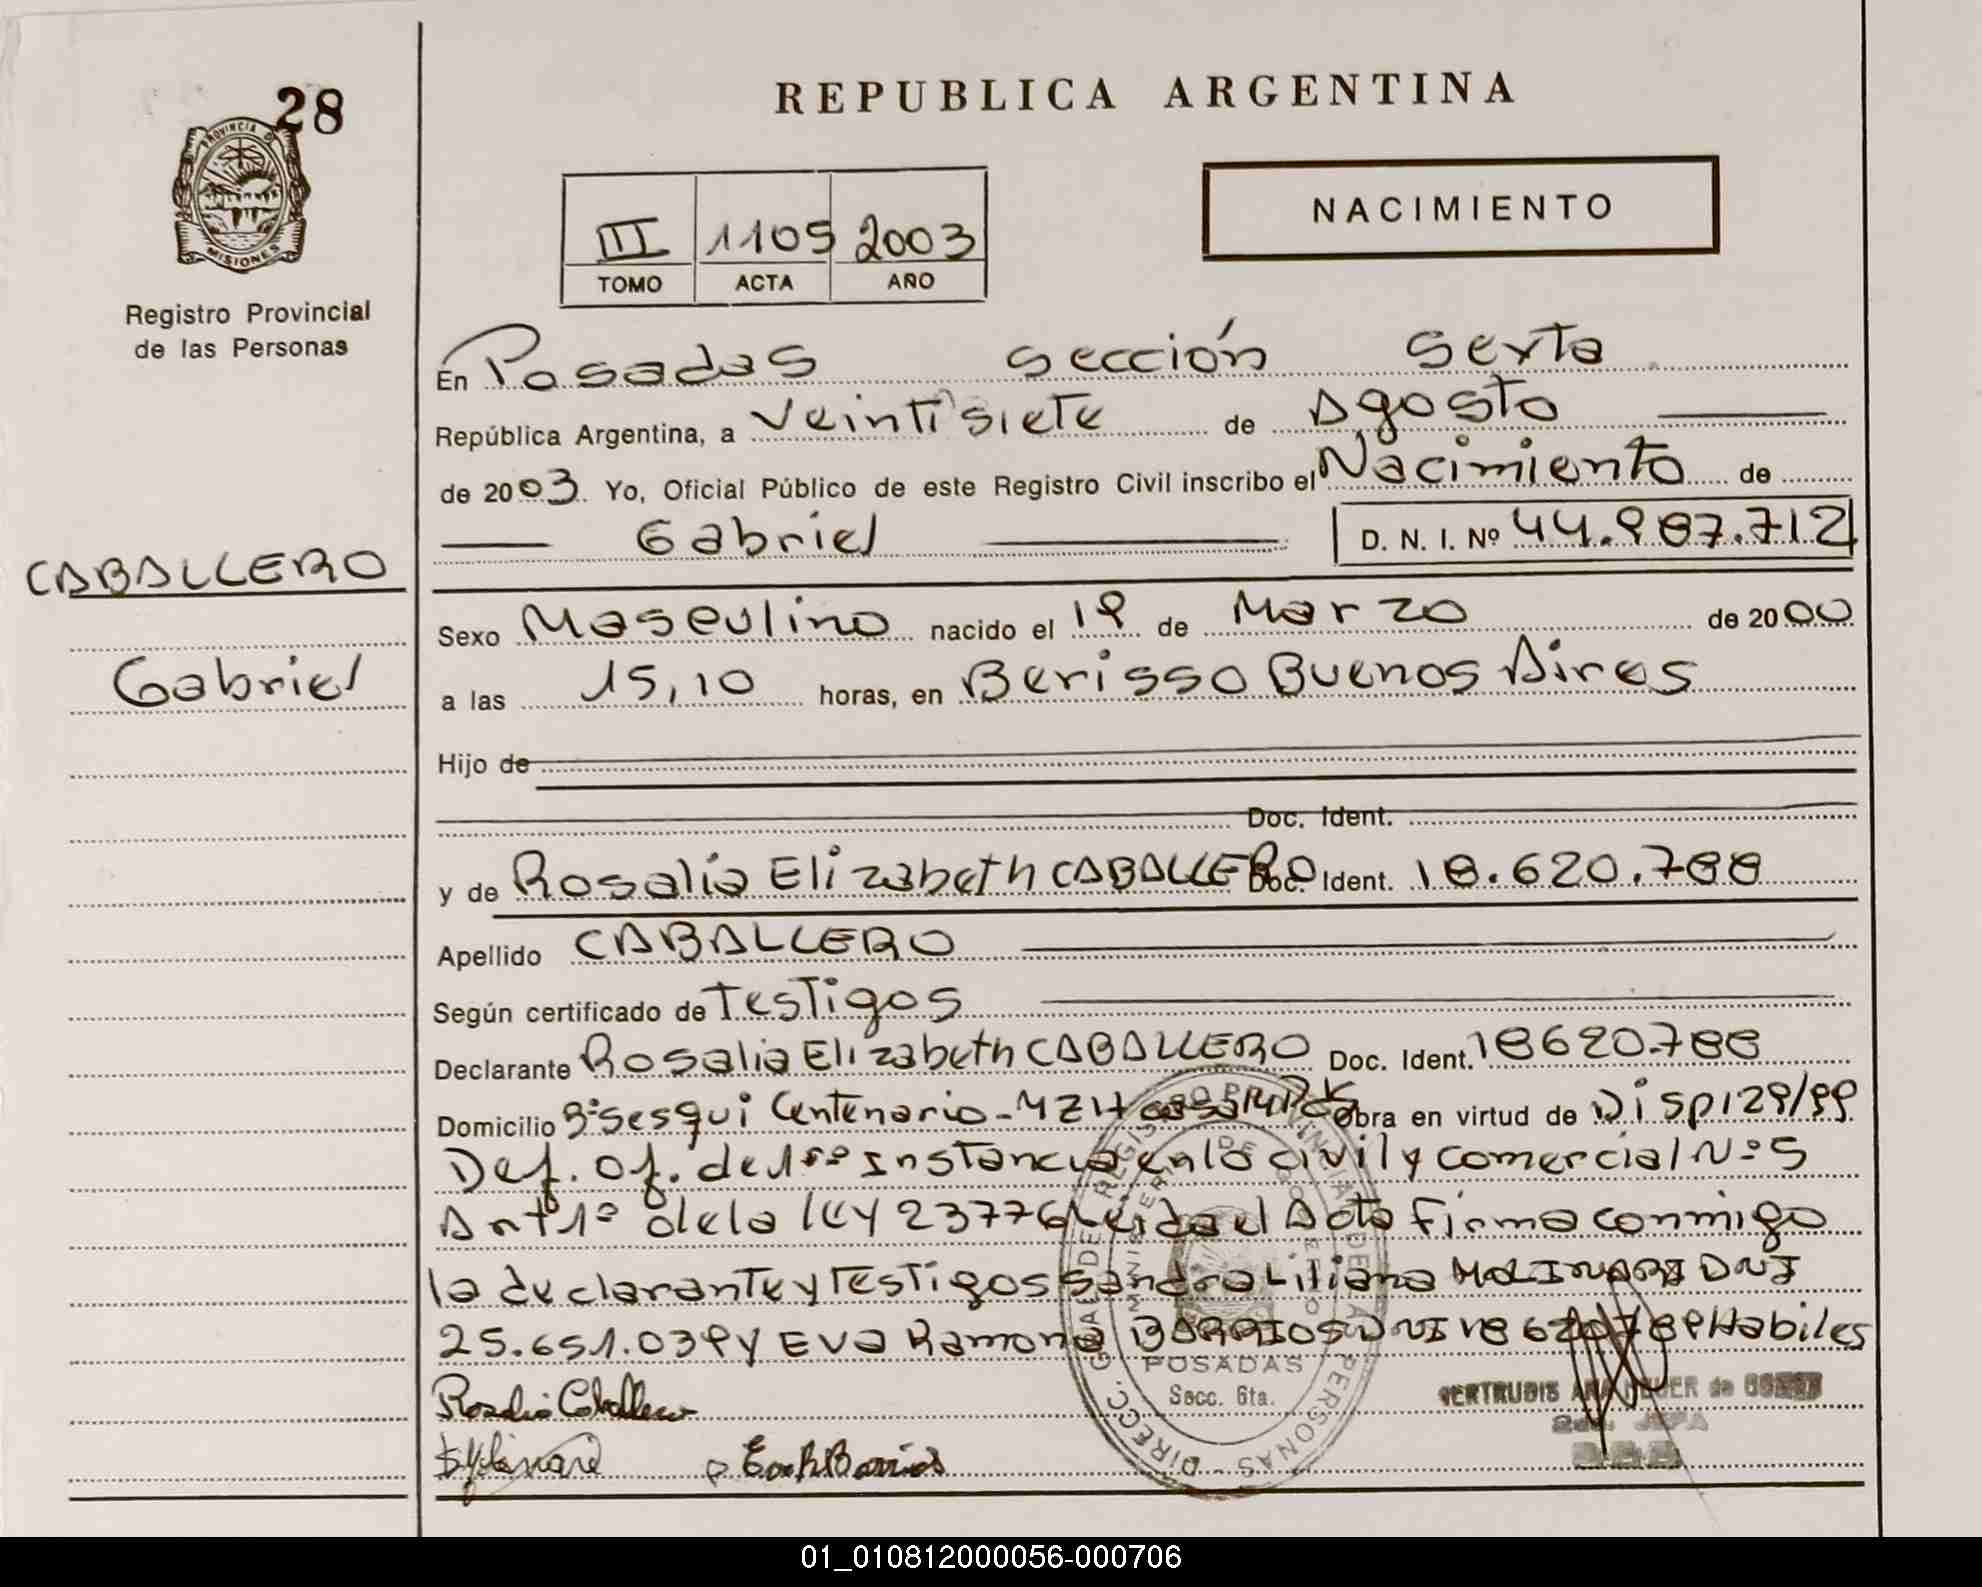 28
PROVINCIA DE
MISIONES
Registro Provincial
de las Personas
REPUBLICA ARGENTINA
NACIMIENTO
III 1105 2003
TOMO ACTA AÑO
En Posadas sección sexta
República Argentina, a veintisiete de Agosto
de 2003. Yo, Oficial Público de este Registro Civil inscribo el Nacimiento de
Gabriel D. N. I. Nº 44.987.712
CABALLERO
Gabriel
Sexo Masculino nacido el 19 de Marzo de 2000
a las 15,10 horas, en Berisso Buenos Aires
Hijo de
Doc. Ident.
y de Rosalia Elizabeth CABALLERO Doc. Ident. 18.620.788
Apellido CABALLERO
Según certificado de Testigos
Declarante Rosalia Elizabeth CABALLERO Doc. Ident. 18620.788
Domicilio Bº Sesqui Centenario - MZ H casa Obra en virtud de Disp 129/99
Def. Of. de 1ra Instancia en lo civil y comercial Nº 5
Art 1º de la ley 23776 Leida el Acta Firma conmigo
la declarante y Testigos Sandra Liliana MOLINARI DNI
25.651.039 y EVA Ramona BARRIOS DNI 18 Habiles
Rosalia Caballero
POSADAS
Secc. 6ta.
GERTRUDIS ANA de
JEFA
DIRECC. GRAL. DE REGISTRO PROVINCIAL DE LAS PERSONAS
01_010812000056-000706